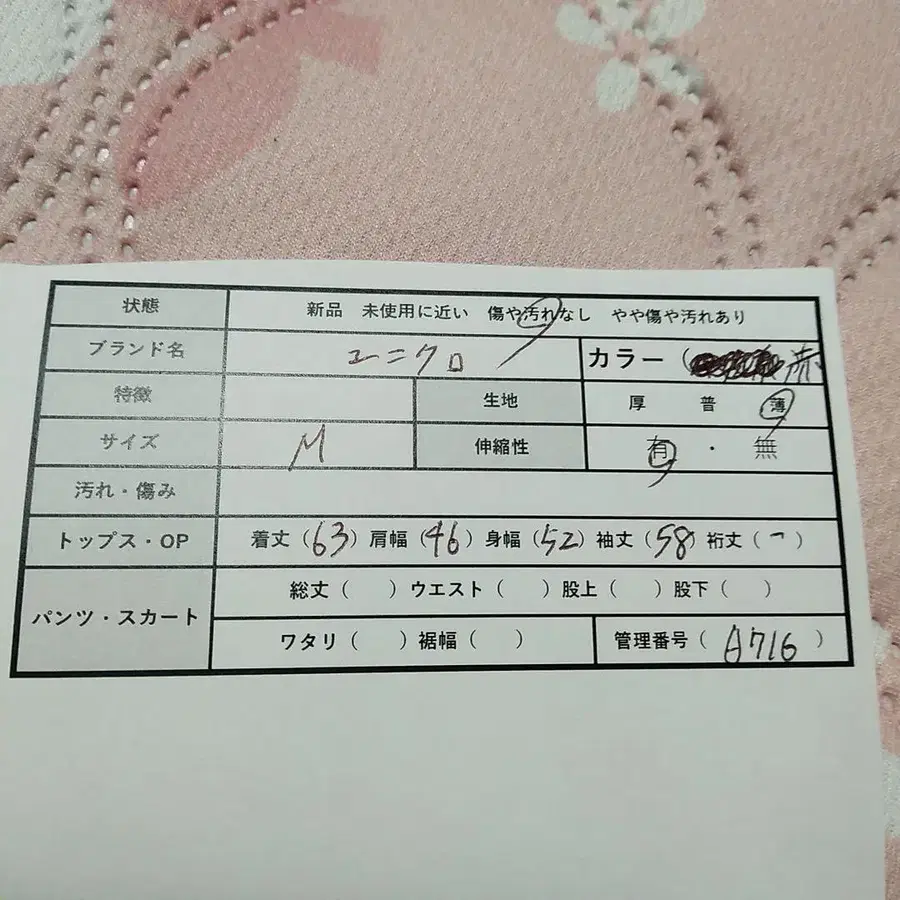 状態 新品 未使用に近い 傷や汚れなし やや傷や汚れあり
ブランド名 ユニクロ カラー ( 赤
特徴 生地 厚 普 薄
サイズ M 伸縮性 有 ・ 無
汚れ・傷み
トップス・OP 着丈 (63) 肩幅 (46) 身幅 (52) 袖丈 (58) 裄丈 (ー)
パンツ・スカート 総丈 ( ) ウエスト ( ) 股上 ( ) 股下 ( )
ワタリ ( ) 裾幅 ( ) 管理番号 ( A716 )